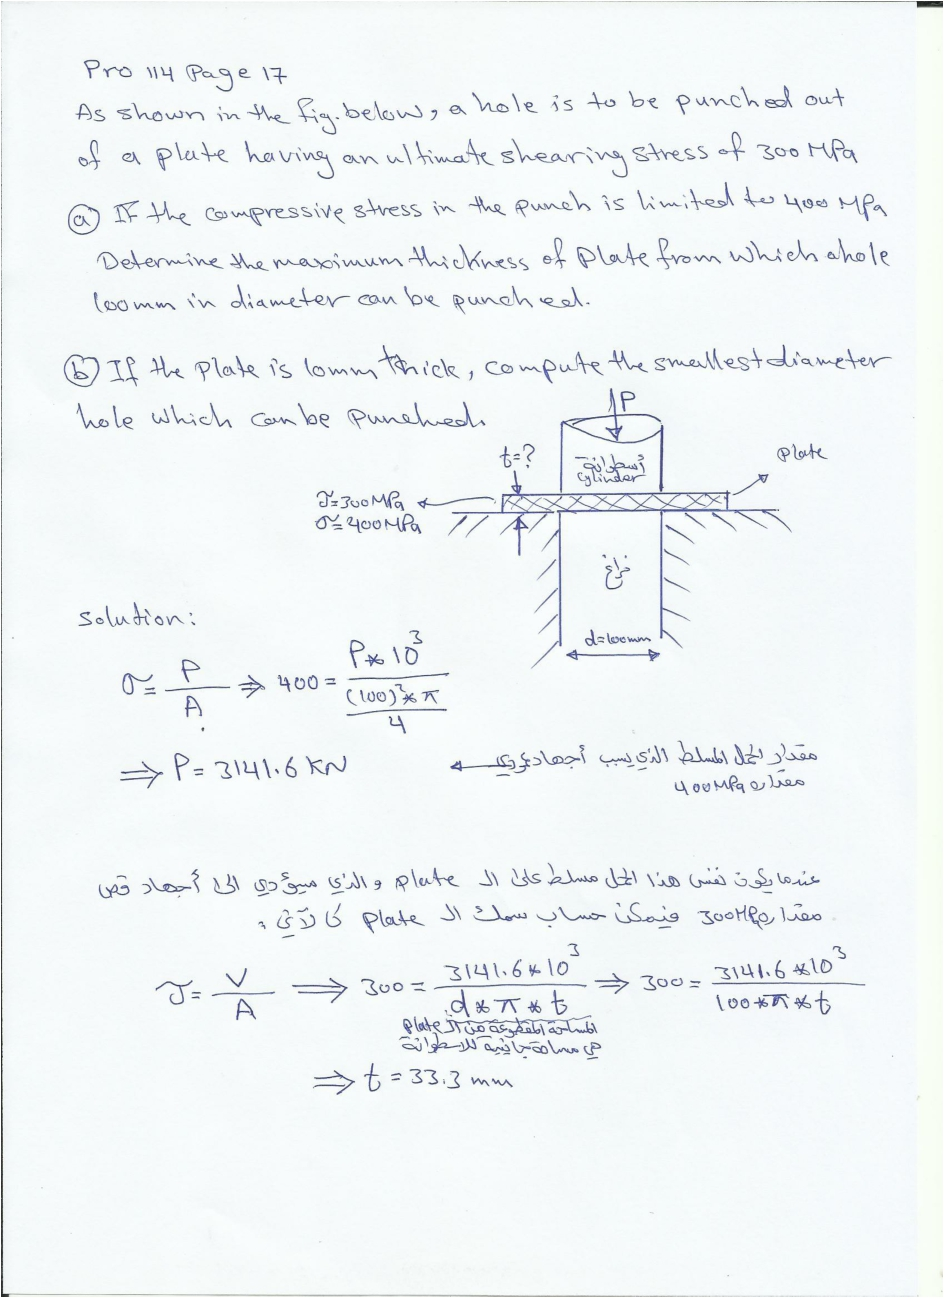 Pro 114 Page 17
As shown in the fig. below, a hole is to be punched out
of a plate having an ultimate shearing stress of 300 MPa
(a) IF the compressive stress in the punch is limited to 400 MPa
Determine the maximum thickness of plate from which a hole
100mm in diameter can be punched.
(b) If the plate is 10mm thick, compute the smallest diameter
hole which can be punched.
P
t=?
أسطوانة
cylinder
plate
τ=300MPa
σ=400MPa
فراغ
d=100mm
solution:
σ = P/A ⇒ 400 = P*10³/((100)²*π/4)
⇒ P = 3141.6 KN
مقدار الحمل المسلط الذي يسبب أجهاد عمودي
مقداره 400MPa
عندما يكون نفس هذا الحمل مسلط على الـ plate والذي سيؤدي الى أجهاد قص
مقداره 300MPa فيمكن حساب سمك الـ plate كالآتي:
τ = V/A ⇒ 300 = 3141.6*10³/(d*π*t) ⇒ 300 = 3141.6*10³/(100*π*t)
المساحة المقطوعة من الـ plate
هي مساحة جانبية للاسطوانة
⇒ t = 33.3 mm